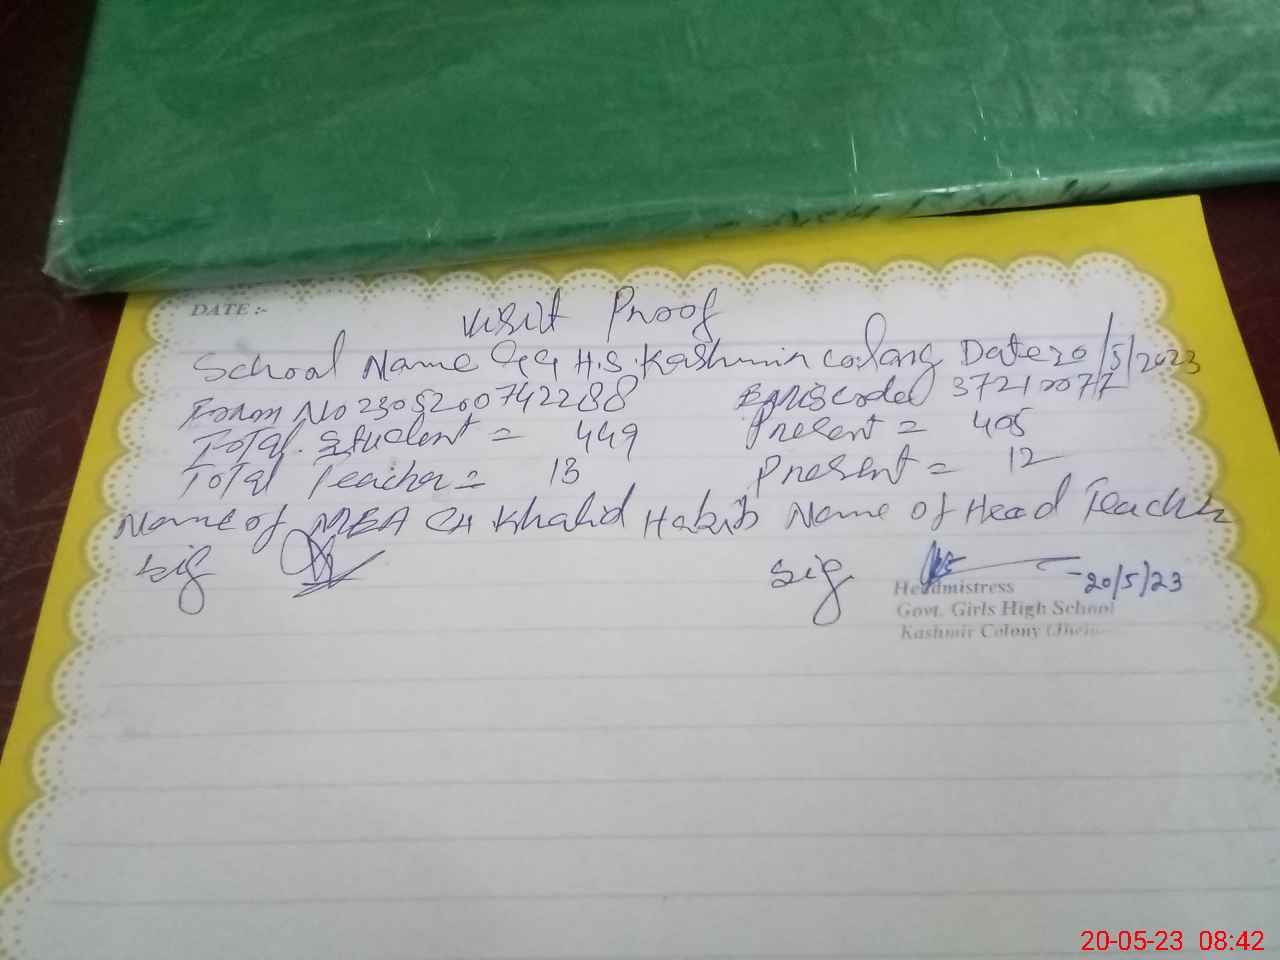 DATE :-
Visit Proof
School Name GG H.S. Kashmir colony Date 20/5/2023
Form No 230520074 2288 EMIS code 37212077
Total Student = 449 Present = 405
Total Teacher = 13 Present = 12
Name of MEA CH Khalid Habib Name of Head Teacher
Sig Sig 20/5/23
Headmistress
Govt. Girls High School
Kashmir Colony
20-05-23 08:42